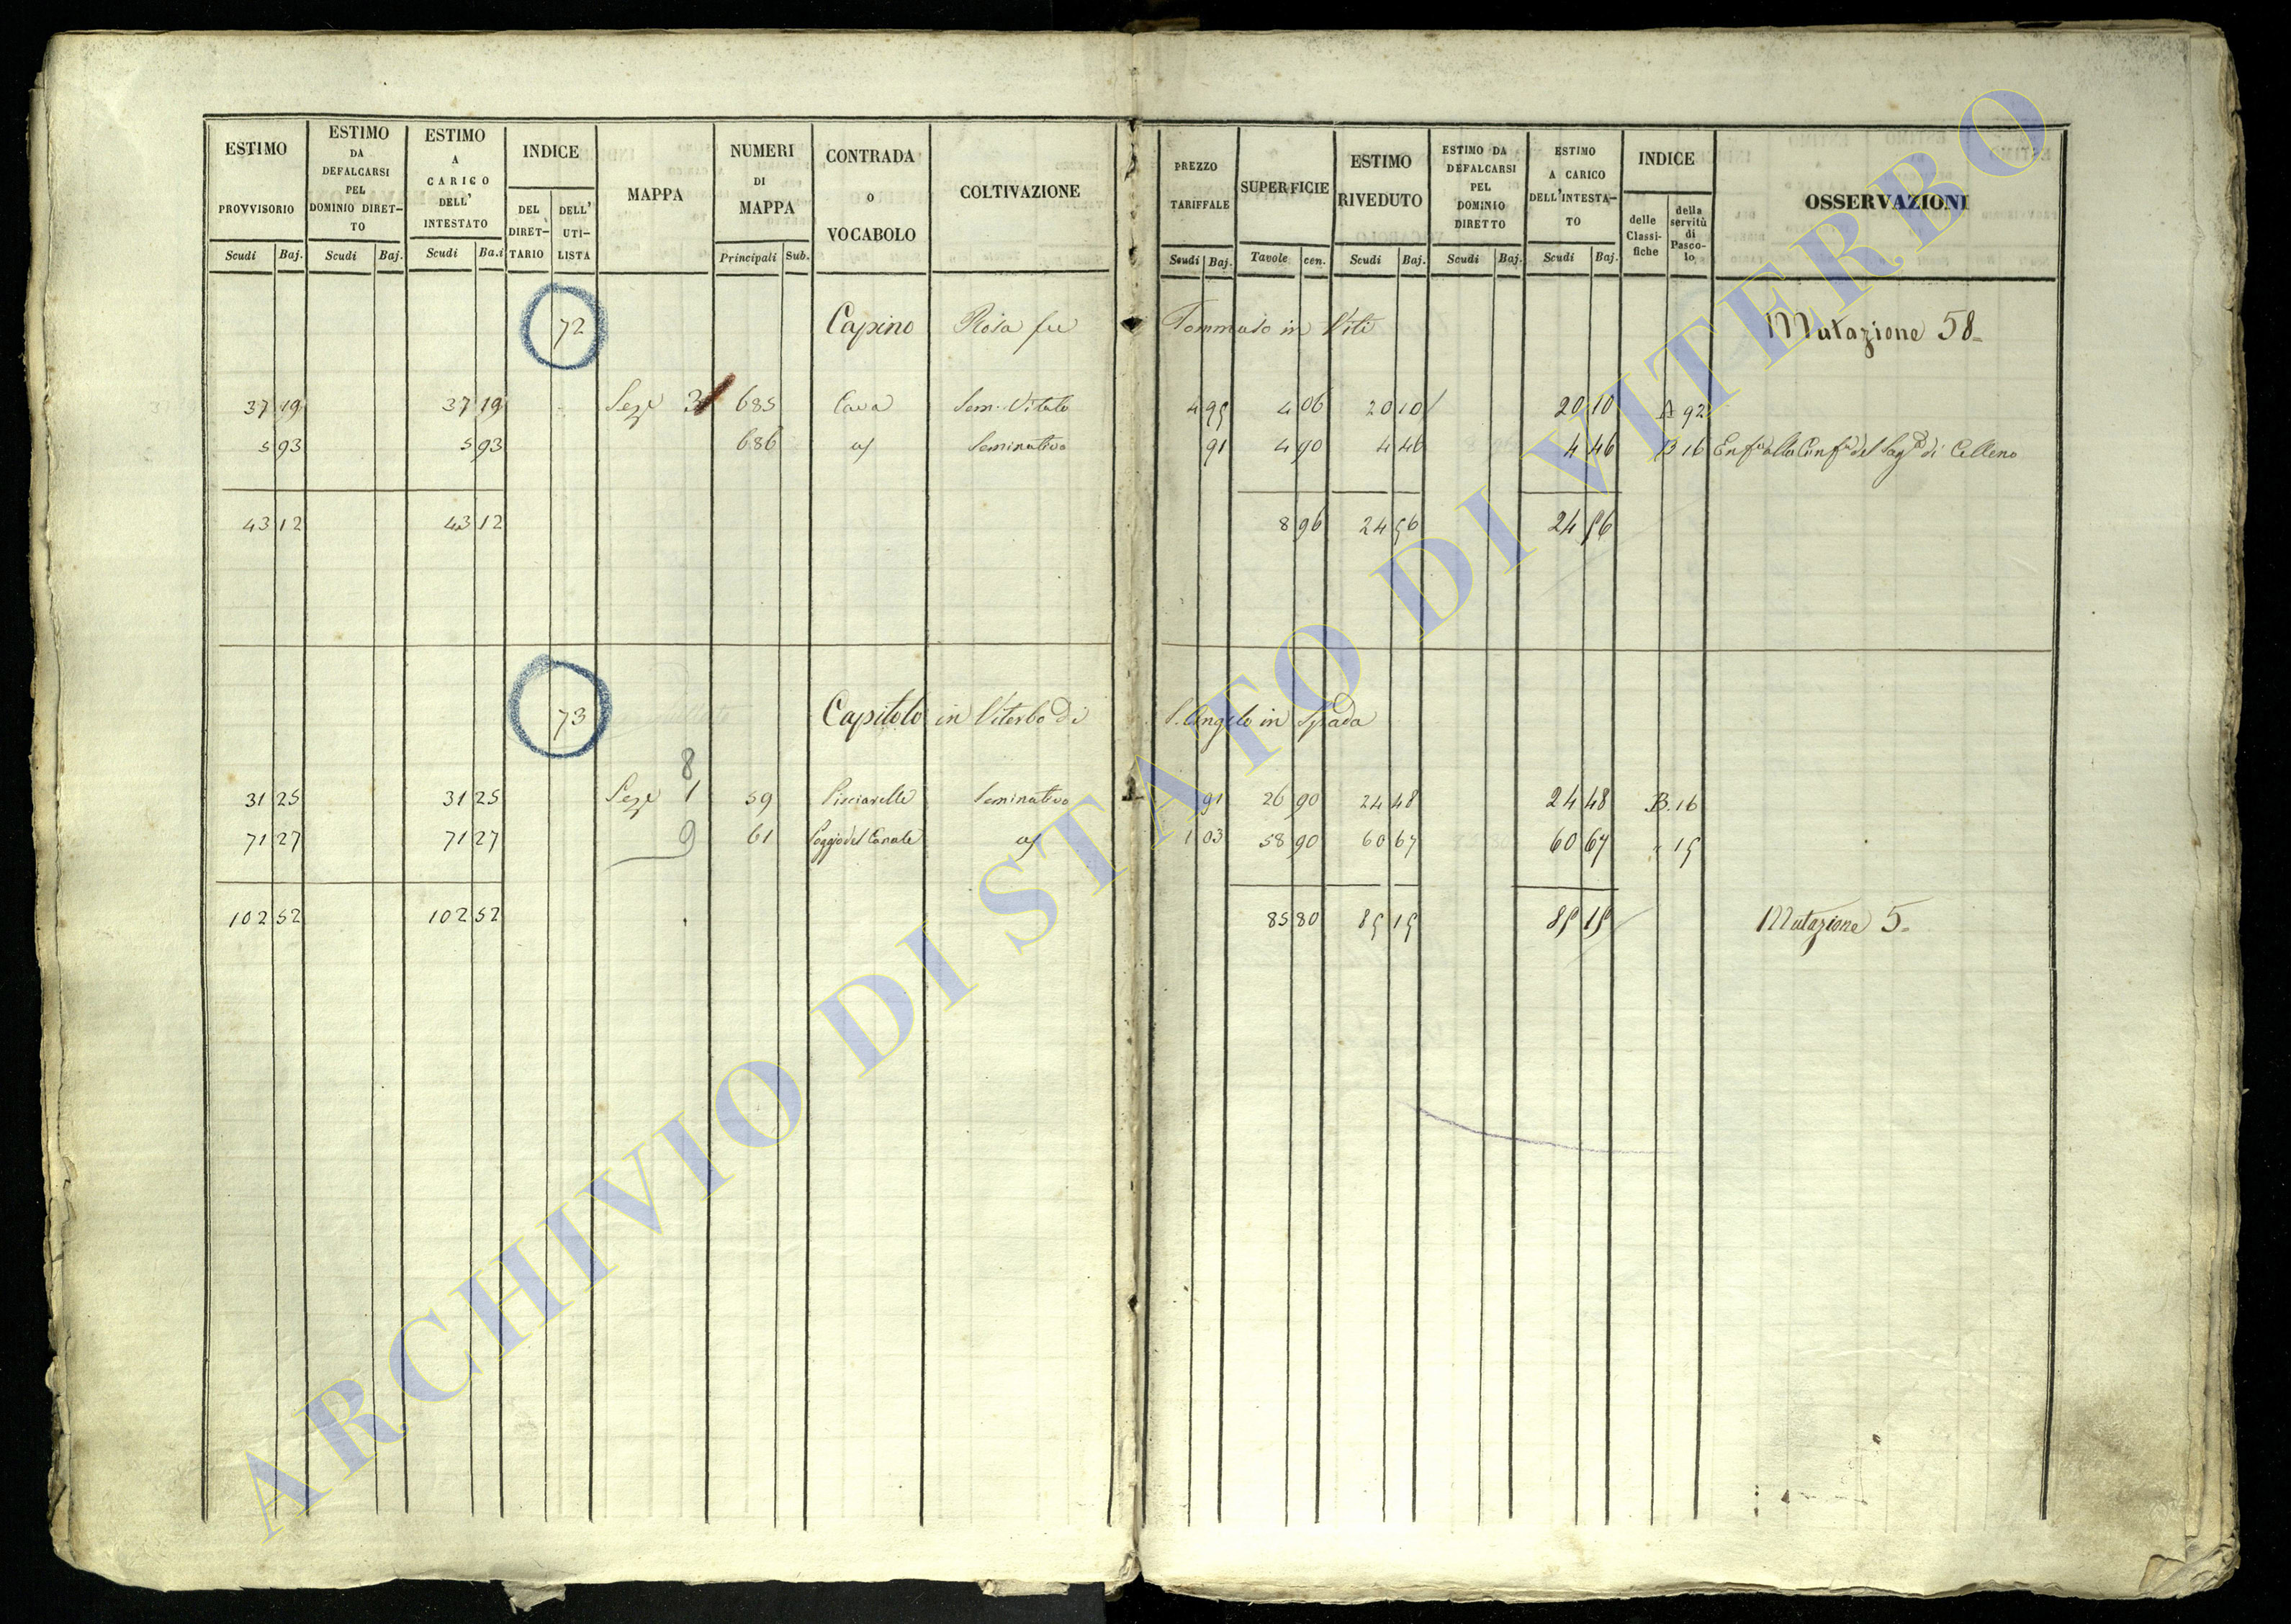 ESTIMO PROVVISORIO
Scudi Baj.
ESTIMO DA DEFALCARSI PEL DOMINIO DIRET-TO
Scudi Baj.
ESTIMO A CARICO DELL' INTESTATO
Scudi Ba.i
INDICE
DEL DIRET-TARIO
DELL' UTI-LISTA
MAPPA
NUMERI DI MAPPA
Principali Sub.
CONTRADA o VOCABOLO
COLTIVAZIONE
PREZZO TARIFFALE
Scudi Baj.
SUPERFICIE
Tavole cen.
ESTIMO RIVEDUTO
Scudi Baj.
ESTIMO DA DEFALCARSI PEL DOMINIO DIRETTO
Scudi Baj.
ESTIMO A CARICO DELL'INTESTA-TO
Scudi Baj.
INDICE
delle Classi-fiche
della servitù di Pasco-lo
OSSERVAZIONI
72 Capino Rosa fu Tommaso in Viti Mutazione 58
37 19 37 19 Seze 3 685 Cava Sem. Vitato 4 95 4 06 20 10 20 10 A 92
5 93 5 93 686 Seminativo 91 4 90 4 46 4 46 B 16 di Celleno
43 12 43 12 8 96 24 56 24 56
73 Capitolo in Viterbo di S. Angelo in Spada
8
31 25 31 25 Seze 1 59 Pisciarelli Seminativo 91 26 90 24 48 24 48 B. 16
71 27 71 27 9 61 Poggio del Canale 1 03 58 90 60 67 60 67 " 15
102 52 102 52 85 80 85 15 85 15 Mutazione 5
ARCHIVIO DI STATO DI VITERBO